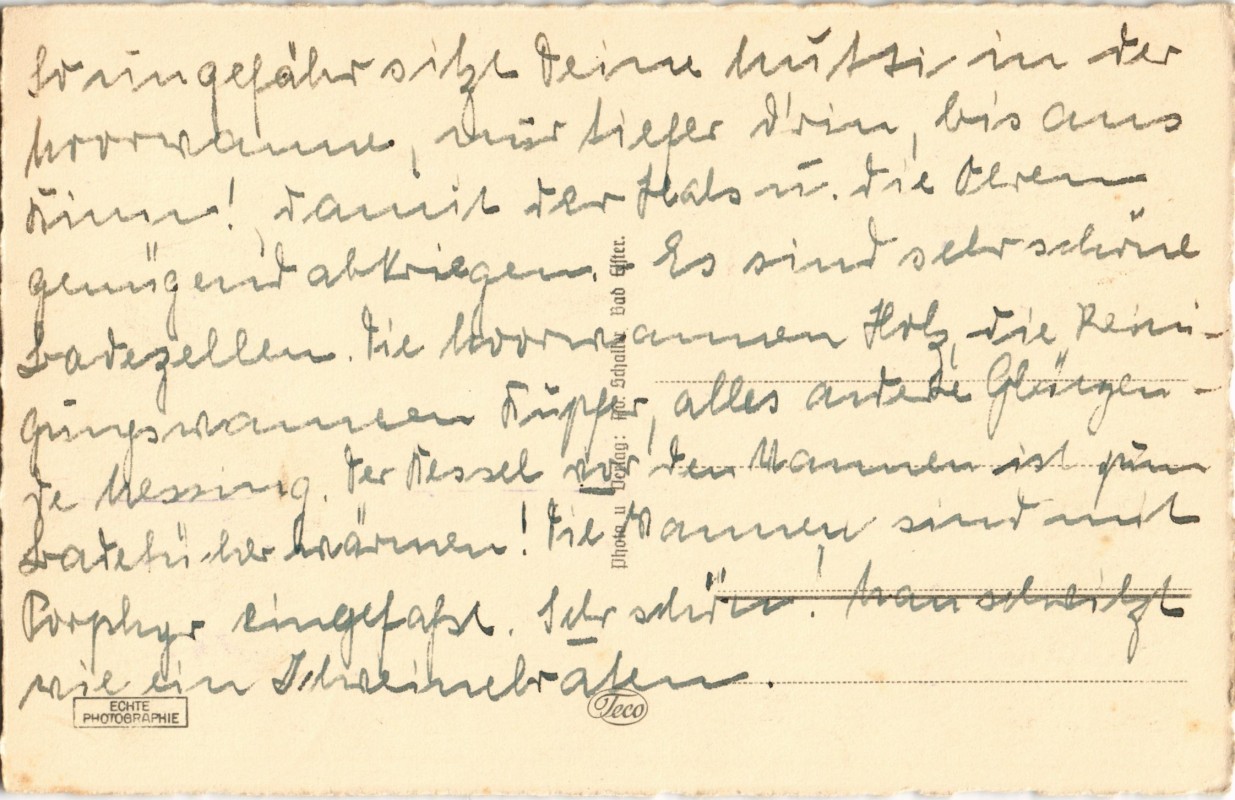 So ungefähr sitzt Deine Mutti in der
Moorwanne, nur tiefer d'rin, bis ans
Kinn! damit der Hals u. die Ohren
genügend abkriegen. Es sind sehr schöne
Badezellen. Die Moorwannen Holz, die Reini-
gungswannen Kupfer, alles andere Glänzen-
de Messing. Der Kessel vor den Wannen ist zum
Badetücher wärmen! Die Wannen sind mit
Porphyr eingefaßt. Sehr schön! Man schwitzt
wie ein Schweinebraten.
Photo u Verlag: Schaller Bad Elster.
ECHTE
PHOTOGRAPHIE
Teco